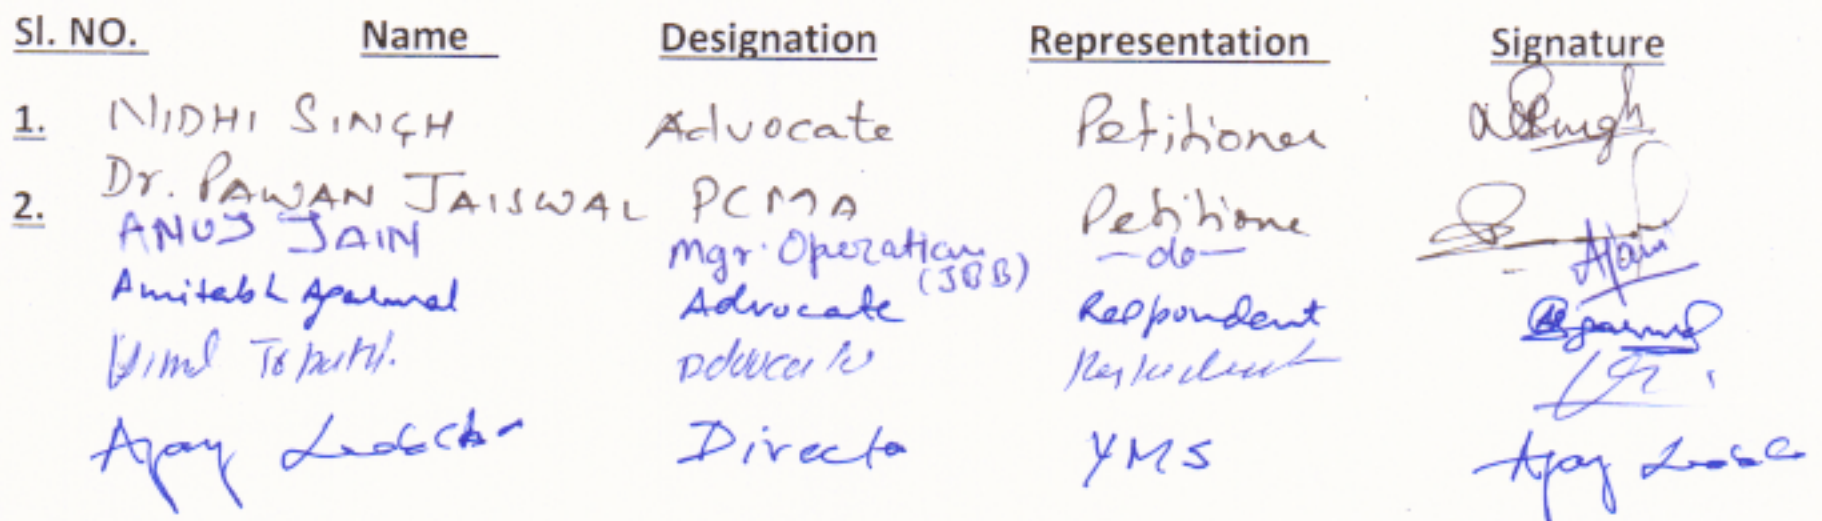 Sl. NO. Name Designation Representation Signature
1. NIDHI SINGH Advocate Petitioner
2. Dr. PAWAN JAISWAL PCMA Petitione
ANUJ JAIN Mgr. Operation (JBB) -do- AJain
Amitabh Agarwal Advocate Respondent Agarwal
Vimal Advocate Respondent
Ajay Director YMS Ajay